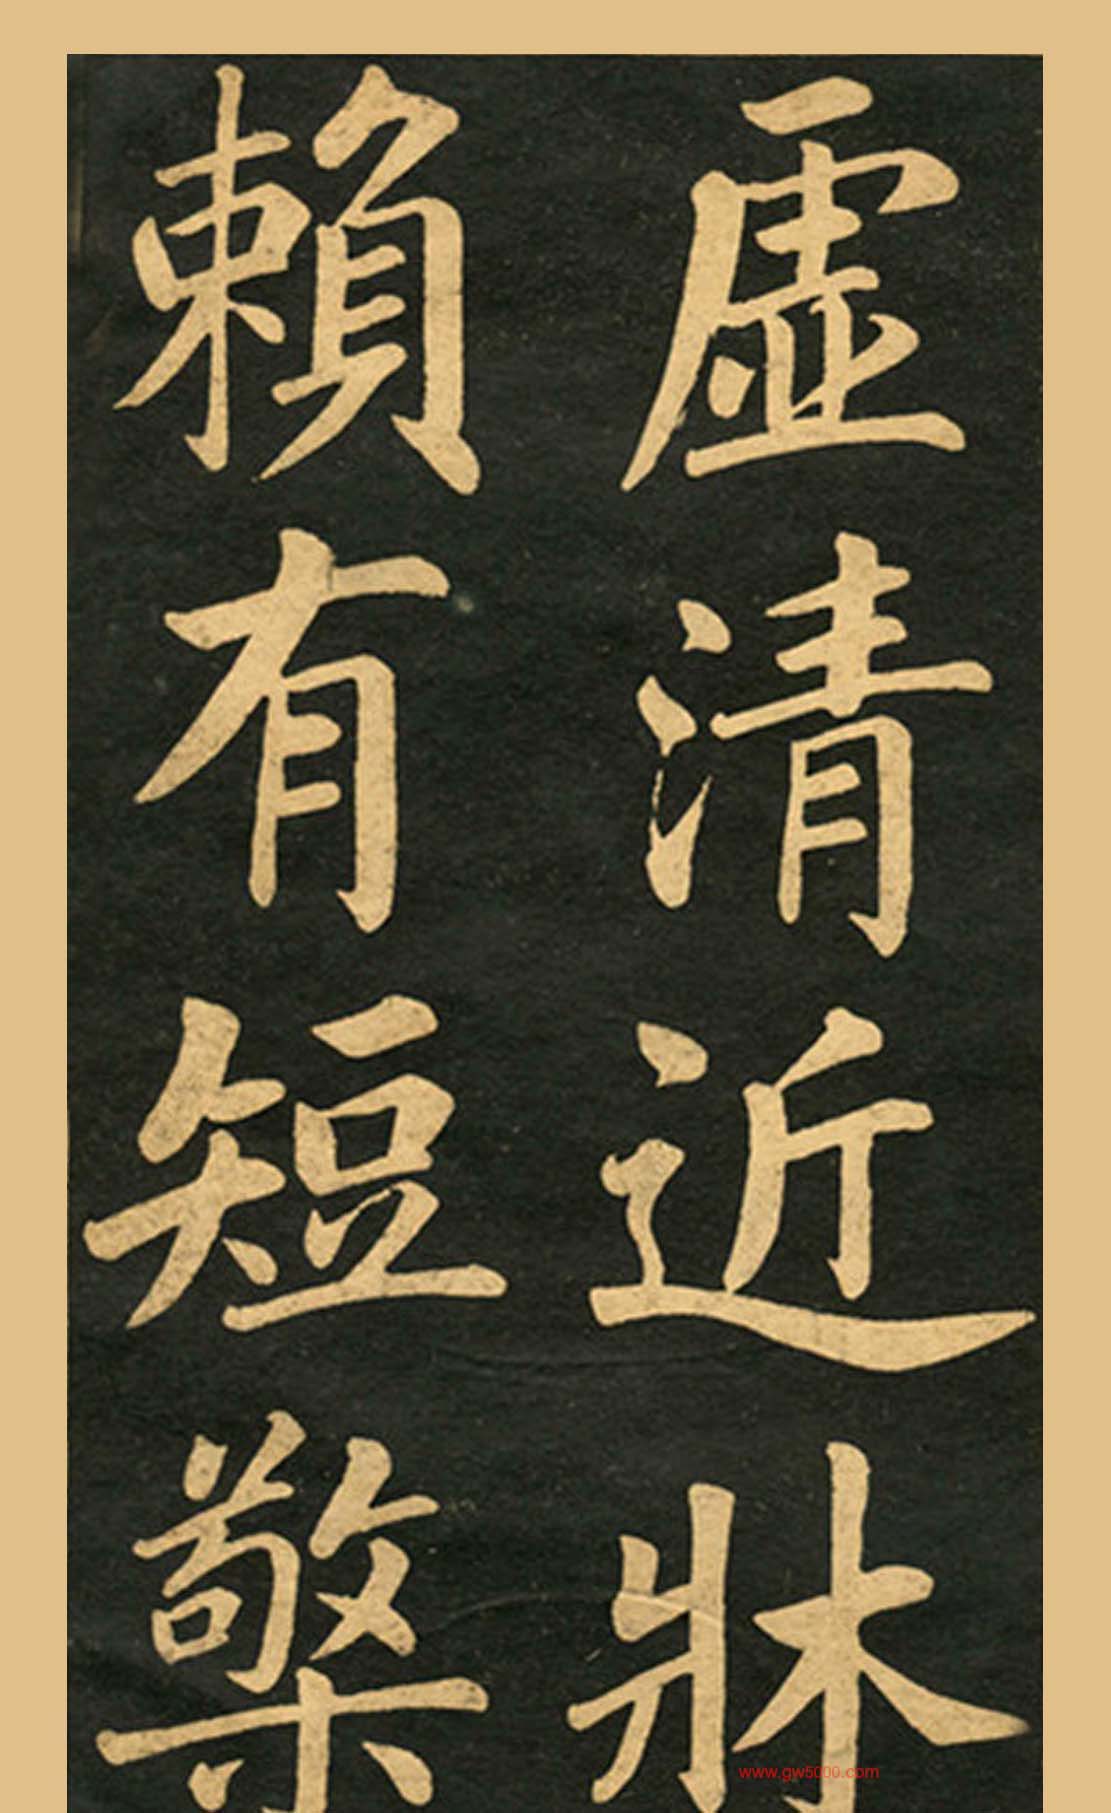 虛清近牀
賴有短檠
www.gw5000.com